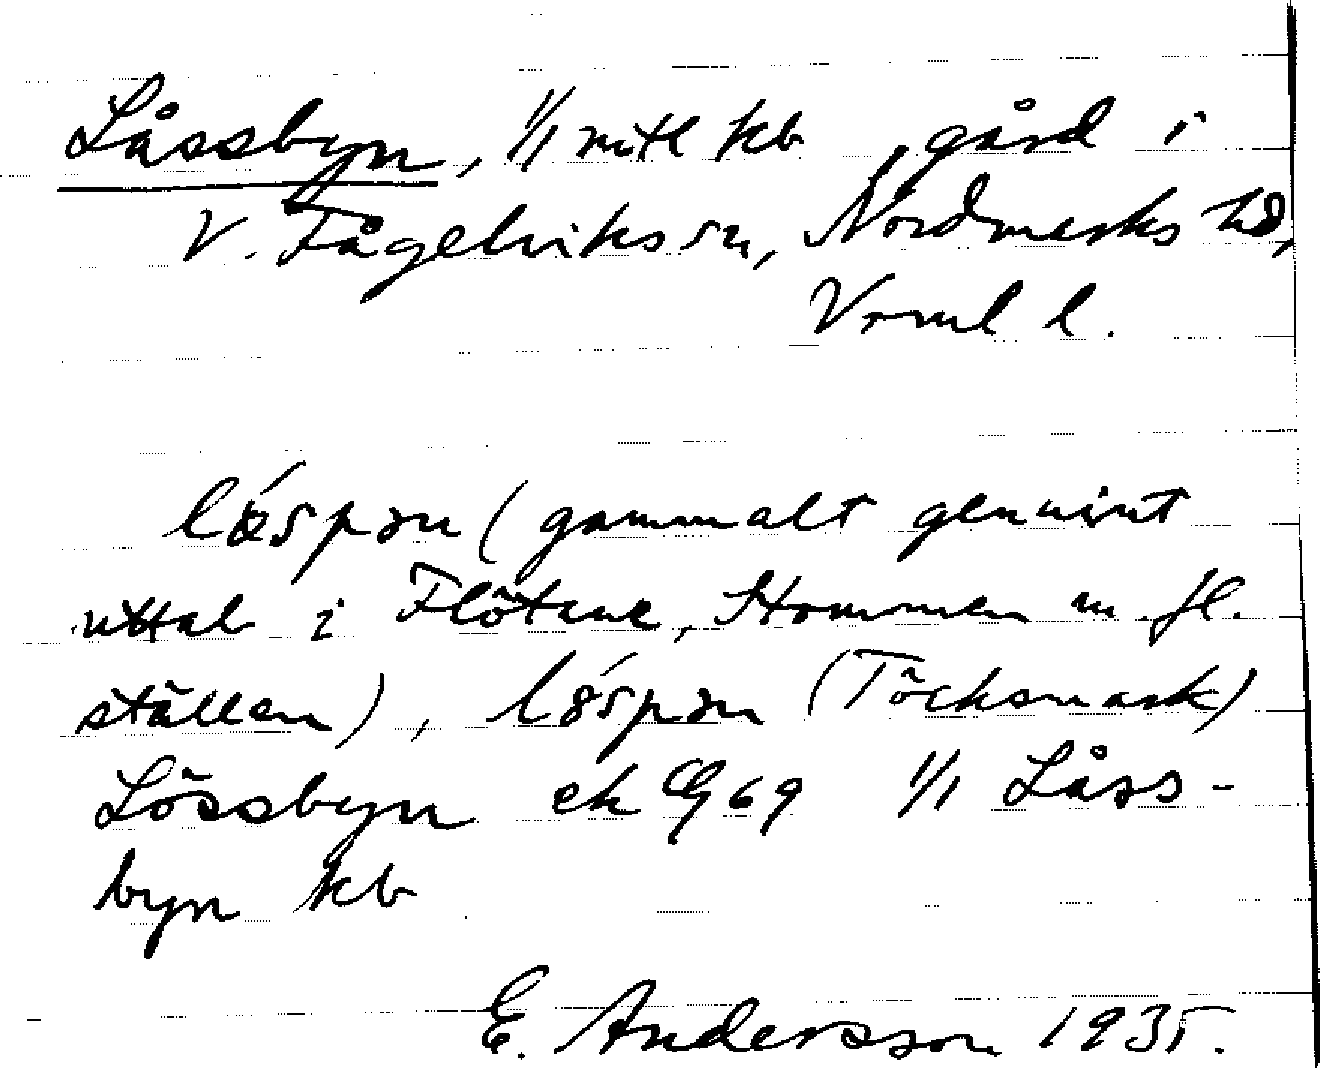 Låssbyn, 1/1 mtl kb, gård i
V. Fågelviks sn, Nordmarks hd,
Vrml l.
lǿspən (gammalt genuint
uttal i Flötane, Hommen m fl.
ställen), lóspən (Töcksmark)
Lössbyn ek 69 1/1 Låss-
byn kb
E. Andersson 1935.